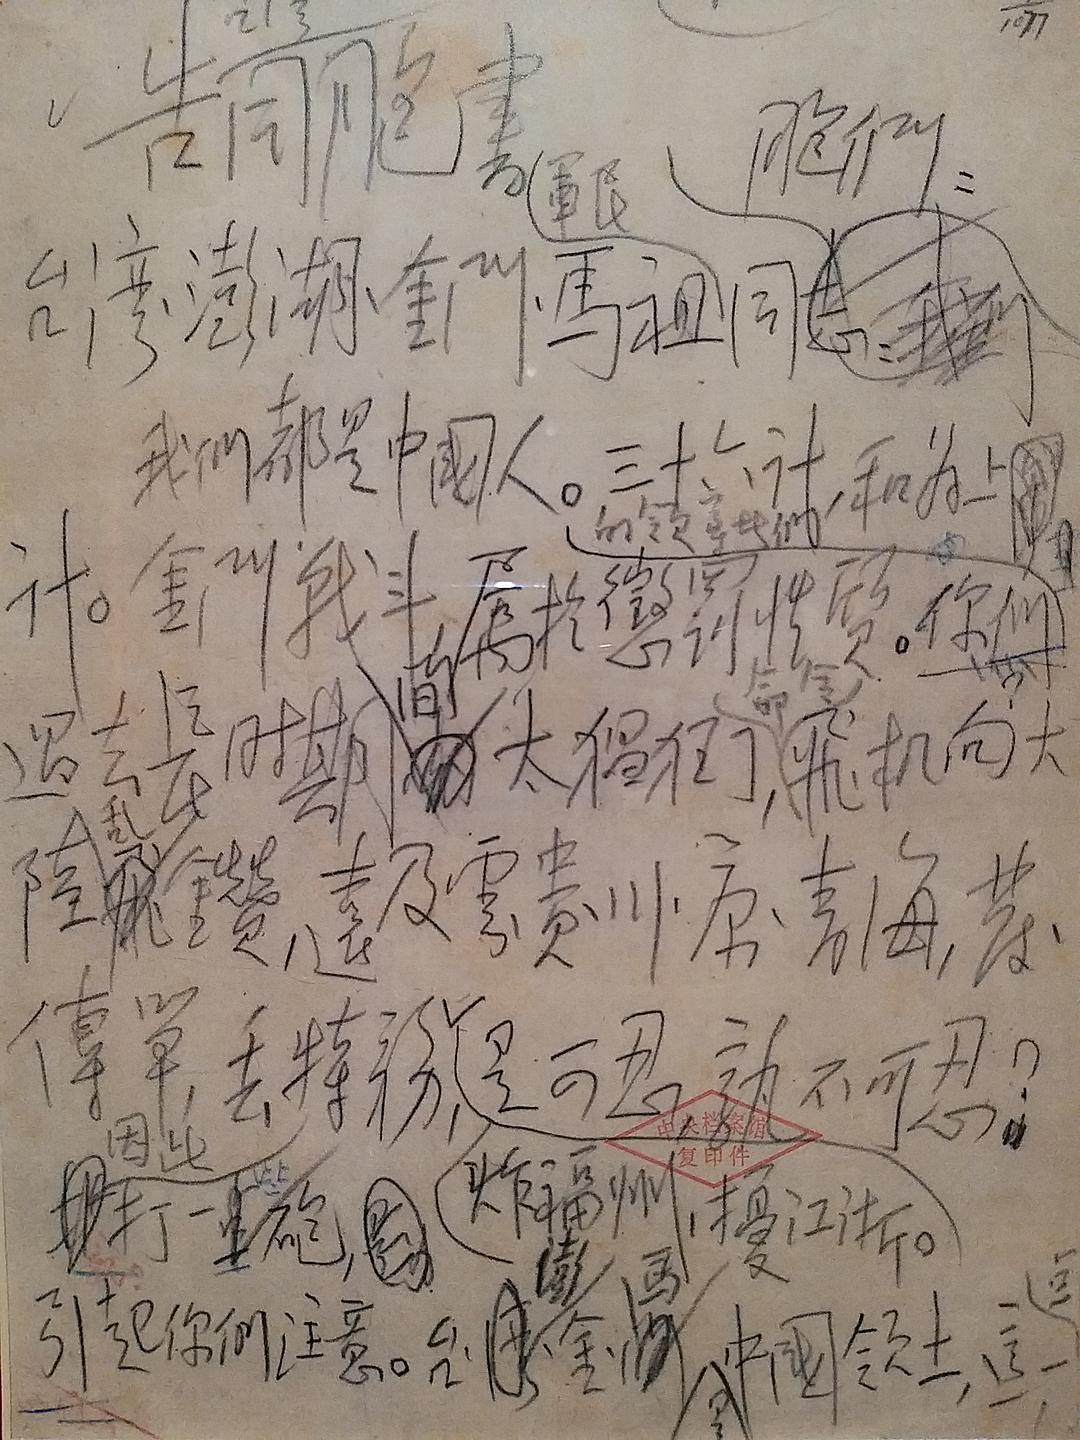 告同胞書
胞們：
軍民
台湾、澎湖、金門、馬祖同志：
我們都是中國人。三十六计，和为上
的領導者們
计。金門战斗，属於懲罰性質。你們
过去長时期間太猖狂了，命令飛机向大
陸乱鑽，遠及雲、貴、川、康、青海，发
傳單，丢特務，是可忍，孰不可忍？
炸福州，擾江浙。
中央档案馆
复印件
因此
打一些砲，
引起你們注意。台、澎、金、馬是中國領土，這一